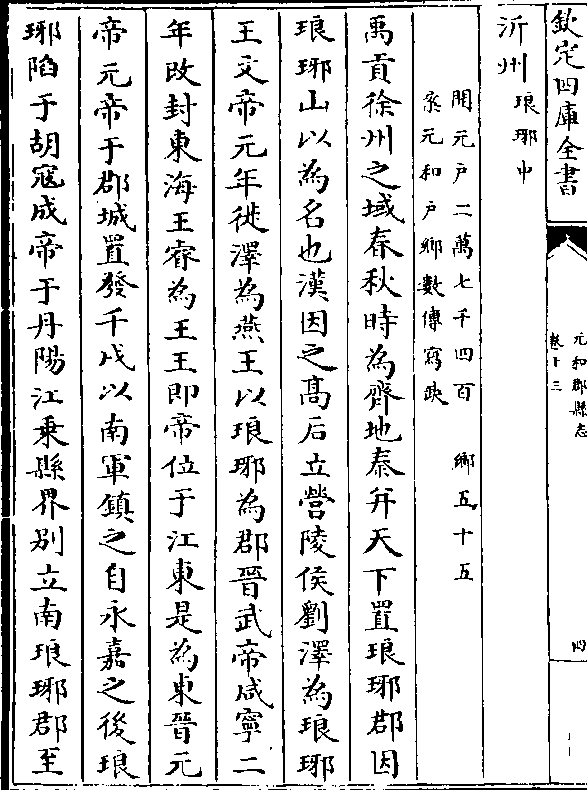 欽定四庫全書
元和郡縣志
卷十三
四
沂州琅邪中
開元戸二萬七千四百 鄉五十五
案元和戸鄉數傳寫缺
禹貢徐州之域春秋時為齊地秦并天下置琅邪郡因
琅邪山以為名也漢因之高后立營陵侯劉澤為琅邪
王文帝元年徙澤為燕王以琅邪為郡晉武帝咸寧二
年改封東海王睿為王王即帝位于江東是為東晉元
帝元帝于郡城置發千戍以南軍鎮之自永嘉之後琅
邪陷于胡寇成帝于丹陽江乗縣界别立南琅邪郡至